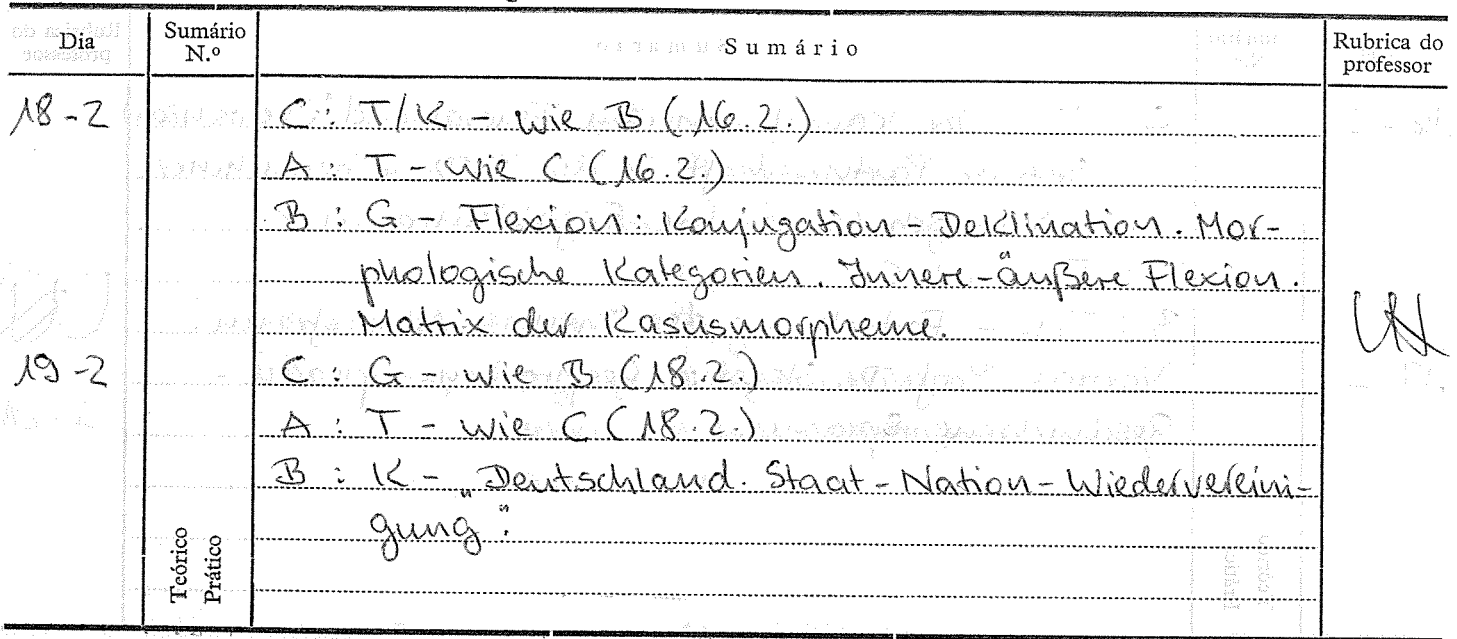 Dia Sumário N.º Sumário Rubrica do professor
18-2 C: T/K - wie B (16.2.)
A: T - wie C (16.2.)
B: G - Flexion: Konjugation - Deklination. Mor-
phologische Kategorien. Innere-äußere Flexion.
Matrix der Kasusmorpheme.
19-2 C: G - wie B (18.2.)
A: T - wie C (18.2.)
B: K - „Deutschland. Staat - Nation - Wiedervereini-
gung".
Teórico
Prático